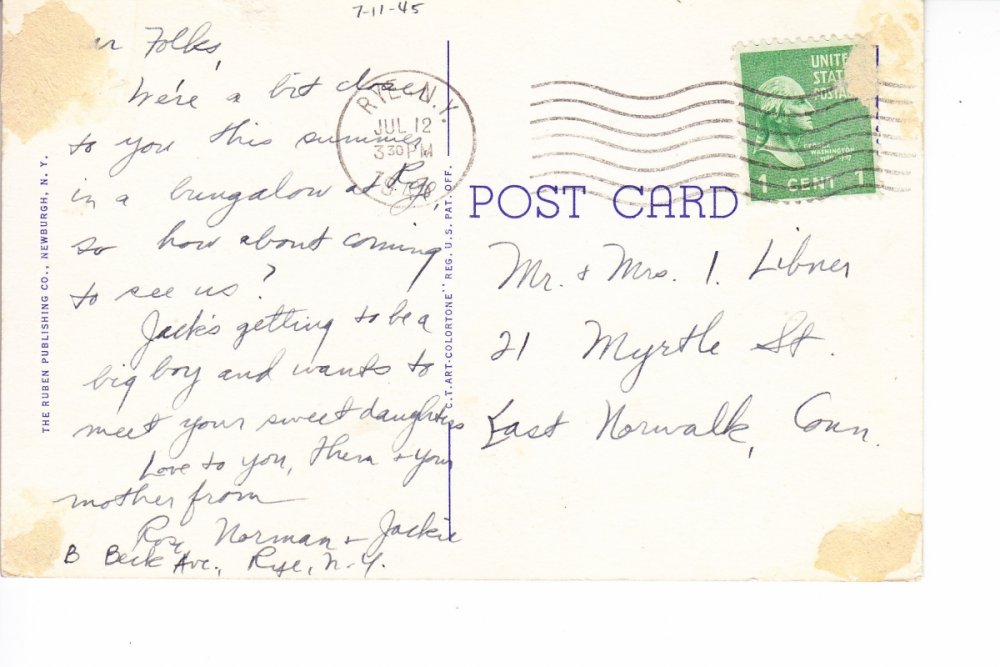 7-11-45
Folks,
We're a bit closer
to you this summer,
in a bungalow at Rye,
so how about coming
to see us?
Jack's getting to be a
big boy and wants to
meet your sweet daughters
Love to you, them + your
mother from
Roz, Norman + Jackie
B Beck Ave., Rye, N.Y.
THE RUBEN PUBLISHING CO., NEWBURGH, N. Y.
C.T. ART-COLORTONE" REG. U.S. PAT. OFF.
RYE N.Y.
JUL 12
3 30 PM
UNITE
STAT
POSTA
WASHINGTON
1 CENT 1
POST CARD
Mr. + Mrs. I. Libner
21 Myrtle St.
East Norwalk, Conn.